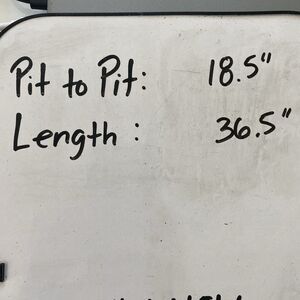 Pit to Pit: 18.5"
Length: 36.5"